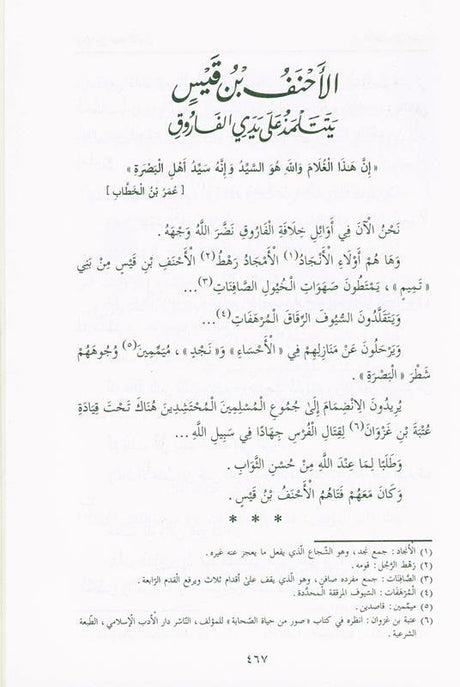 الأَحْنَفُ بْنُ قَيْسٍ
يَتَتَلْمَذُ عَلَى يَدَيِ الفَارُوقِ
« إِنَّ هَـٰذَا الْغُلَامَ وَاللَّهِ هُوَ السَّيِّدُ وَإِنَّهُ سَيِّدُ أَهْلِ الْبَصْرَةِ »
[ عُمَرُ بْنُ الْخَطَّابِ ]
نَحْنُ الْآنَ فِي أَوَائِلِ خِلَافَةِ الْفَارُوقِ نَضَّرَ اللَّهُ وَجْهَهُ .
وَهَا هُمْ أُوْلَاءِ الْأَنْجَادُ(١) الْأَمْجَادُ رَهْطُ(٢) الْأَحْنَفِ بْنِ قَيْسٍ مِنْ بَنِي
« تَمِيمٍ » ، يَمْتَطُونَ صَهَوَاتِ الْخُيُولِ الصَّافِنَاتِ(٣)...
وَيَتَقَلَّدُونَ السُّيُوفَ الرِّقَاقَ الْمُرْهَفَاتِ(٤)...
وَيَرْحَلُونَ عَنْ مَنَازِلِهِمْ فِي « الْأَحْسَاءِ » وَ« نَجْدٍ » ، مُيَمِّمِينَ(٥) وُجُوهَهُمْ
شَطْرَ « الْبَصْرَةِ » .
يُرِيدُونَ الِانْضِمَامَ إِلَىٰ جُمُوعِ الْمُسْلِمِينَ الْمُحْتَشِدِينَ هُنَاكَ تَحْتَ قِيَادَةِ
عُتْبَةَ بْنِ غَزْوَانَ(٦) لِقِتَالِ الْفُرْسِ جِهَادًا فِي سَبِيلِ اللَّهِ ...
وَطَلَبًا لِمَا عِنْدَ اللَّهِ مِنْ حُسْنِ الثَّوَابِ .
وَكَانَ مَعَهُمْ فَتَاهُمُ الْأَحْنَفُ بْنُ قَيْسٍ .
* * *
(١) الْأَنْجَاد : جمع نجد ، وهو الشّجاع الّذي يفعل ما يعجز عنه غيره .
(٢) رَهْط الرّجُل : قومه .
(٣) الصَّافِنَات : جمع مفرده صافن، وهو الّذي يقف علىٰ أقدام ثلاث ويرفع القدم الرّابعة .
(٤) الْمُرْهَفَات : السّيوف المرقّقة المحدّدة .
(٥) ميمّمين : قاصدين .
(٦) عتبة بن غزوان : انظره في كتاب « صور من حياة الصّحابة » للمؤلف ، النّاشر دار الأدب الإسلامي ، الطّبعة
الشرعية .
٤٦٧